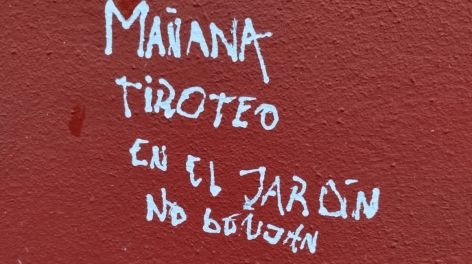 MAÑANA
TIROTEO
EN EL JARDÍN
NO